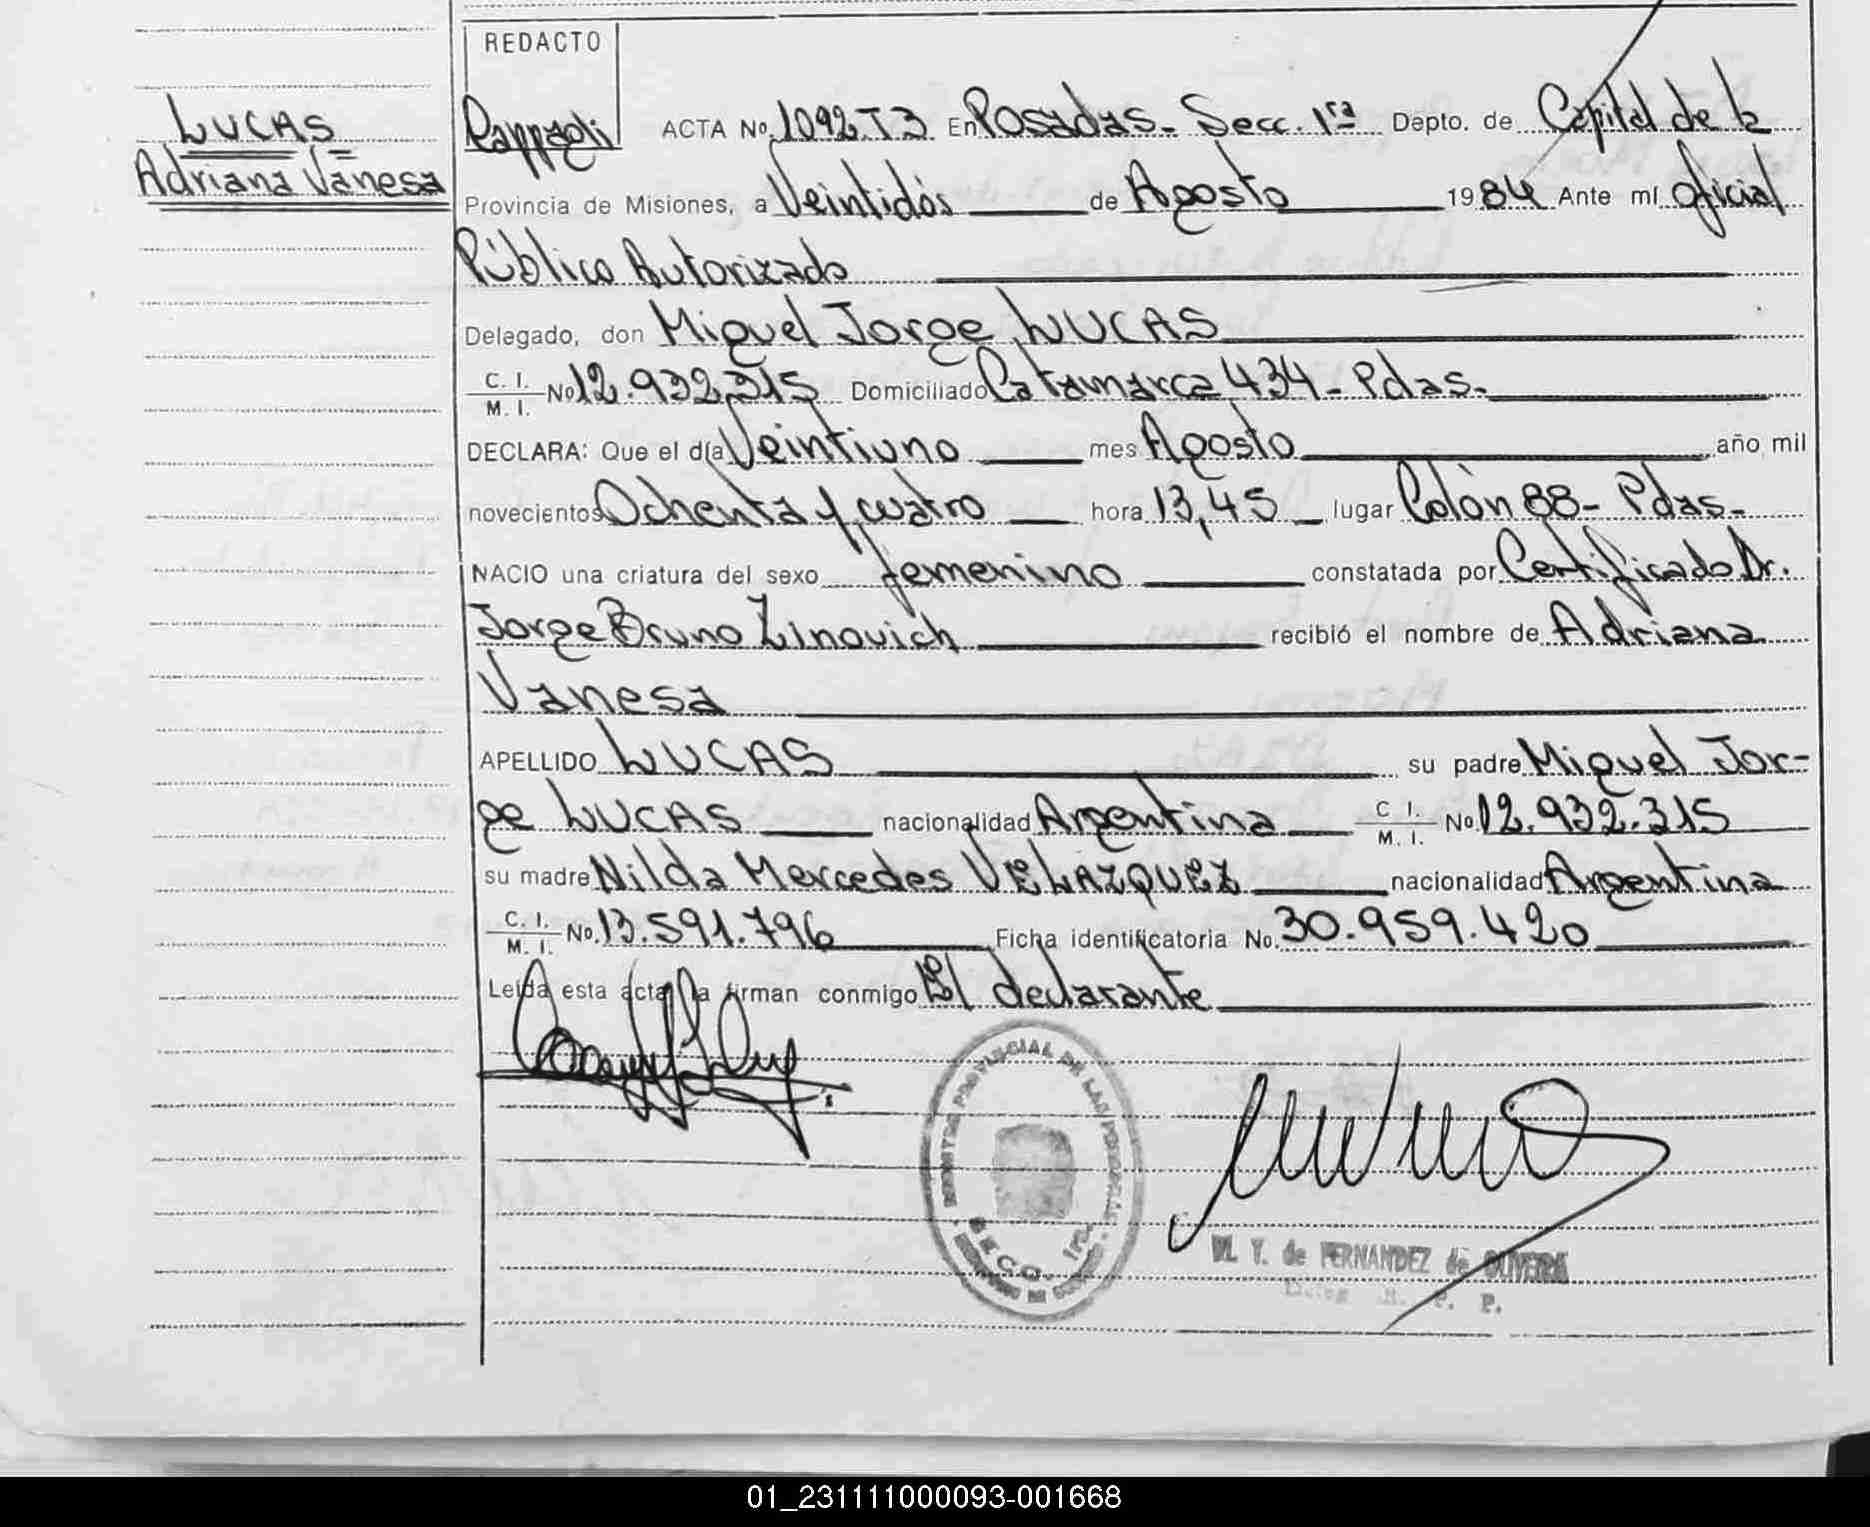 REDACTO
LUCAS
Adriana Vanesa
ACTA No. 1092 T3 En Posadas - Secc. 1ra Depto. de Capital de la
Provincia de Misiones, a Veintidós de Agosto 1984 Ante mí Oficial
Público Autorizado
Delegado, don Miguel Jorge LUCAS
C. I. M. I. No 12.932.315 Domiciliado Catamarca 434 - Pdas-
DECLARA: Que el día Veintiuno mes Agosto año mil
novecientos Ochenta y cuatro hora 13,45 lugar Colón 88 - Pdas-
NACIO una criatura del sexo femenino constatada por Certificado Dr.
Jorge Bruno Zinovich recibió el nombre de Adriana
Vanesa
APELLIDO LUCAS su padre Miguel Jor-
ge LUCAS nacionalidad Argentina C I. M. I. No 12.932.315
su madre Nilda Mercedes VELAZQUEZ nacionalidad Argentina
C. I. M. I. No. 13.591.796 Ficha identificatoria No. 30.959.420
Leída esta acta, la firman conmigo El declarante
REGISTRO PROVINCIAL DE LAS PERSONAS
SECC. 1ra.
M. Y. de FERNANDEZ de OLIVEIRA
R. P. P.
01_231111000093-001668